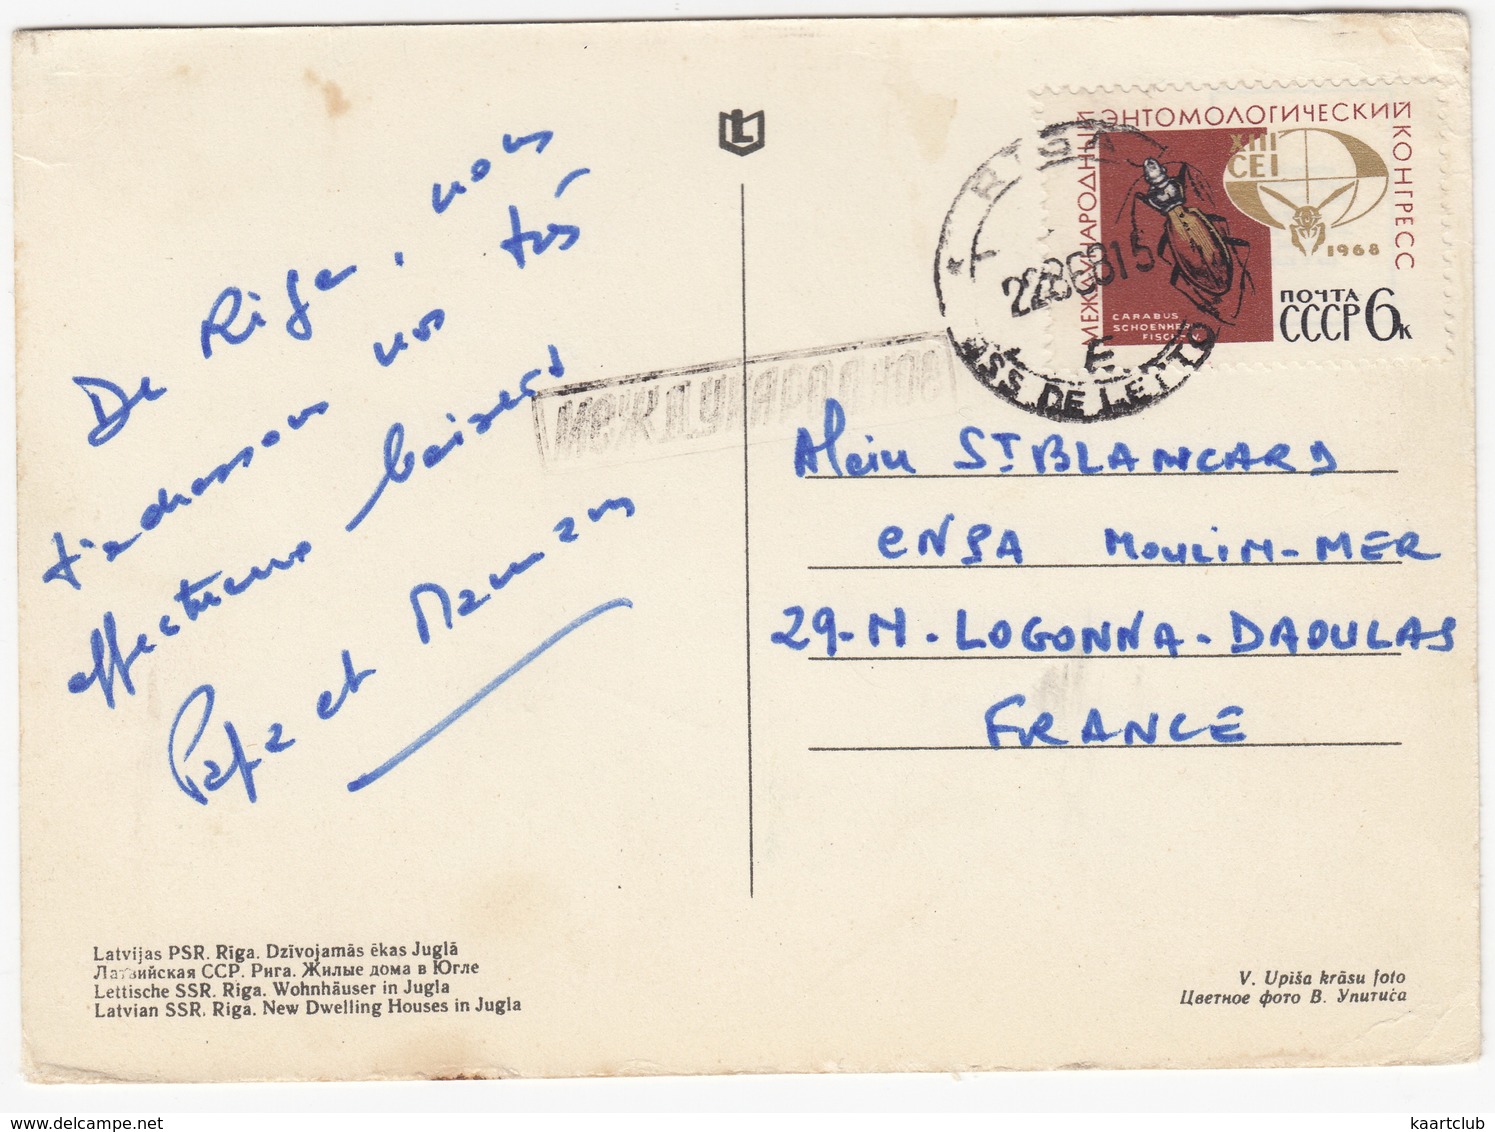 De Riga, nous
t'adressons nos très
affectueux baisers
Papa et Maman
МЕЖДУНАРОДНОЕ
RIGA
22868 15
E
RSS DE LETTO
МЕЖДУНАРОДНЫЙ ЭНТОМОЛОГИЧЕСКИЙ КОНГРЕСС
XIII
CEI
1968
CARABUS
SCHOENHERRI
FISCH.-W.
ПОЧТА
СССР 6к
Alain ST BLANCARD
ENSA MOULIN-MER
29-N. LOGONNA-DAOULAS
FRANCE
Latvijas PSR. Rīga. Dzīvojamās ēkas Juglā
Латвийская ССР. Рига. Жилые дома в Югле
Lettische SSR. Riga. Wohnhäuser in Jugla
Latvian SSR. Riga. New Dwelling Houses in Jugla
V. Upīša krāsu foto
Цветное фото В. Упитиса
kaartclub